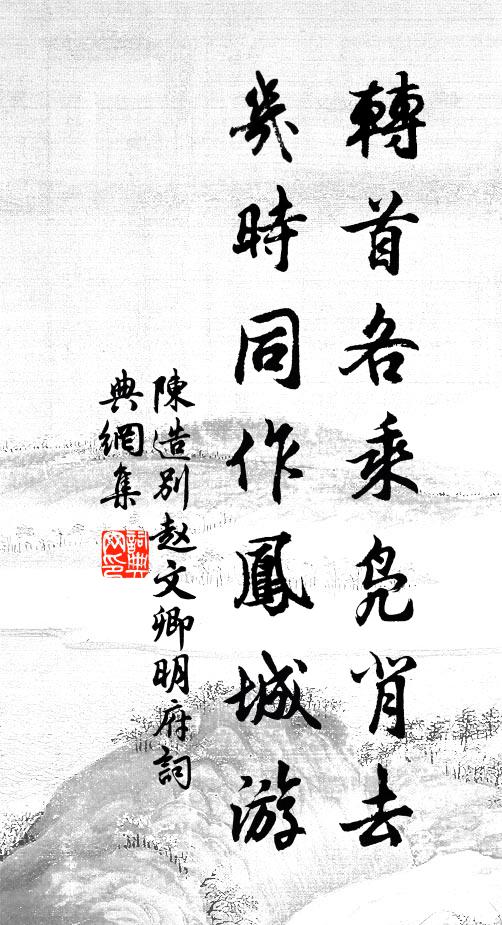 轉首各乘鳧背去
幾時同作鳳城游
陳造別赵文卿明府詞
典網集
詞典網印